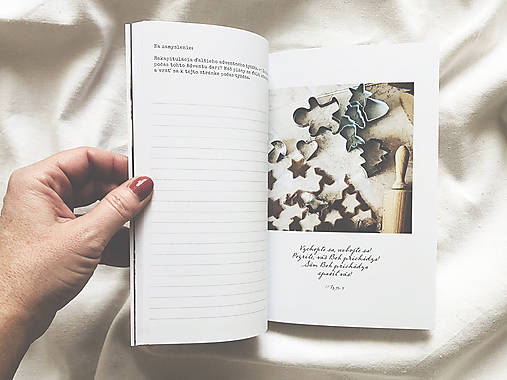 Na zamyslenie:
Rekapitulácia ďalšieho adventného týždňa.
počas tohto Adventu darí? Máš plány na ďalší
a vráť sa k tejto stránke počas týždňa.
Vzchopte sa, nebojte sa!
Pozrite, váš Boh prichádza!
Sám Boh prichádza
spasiť vás!